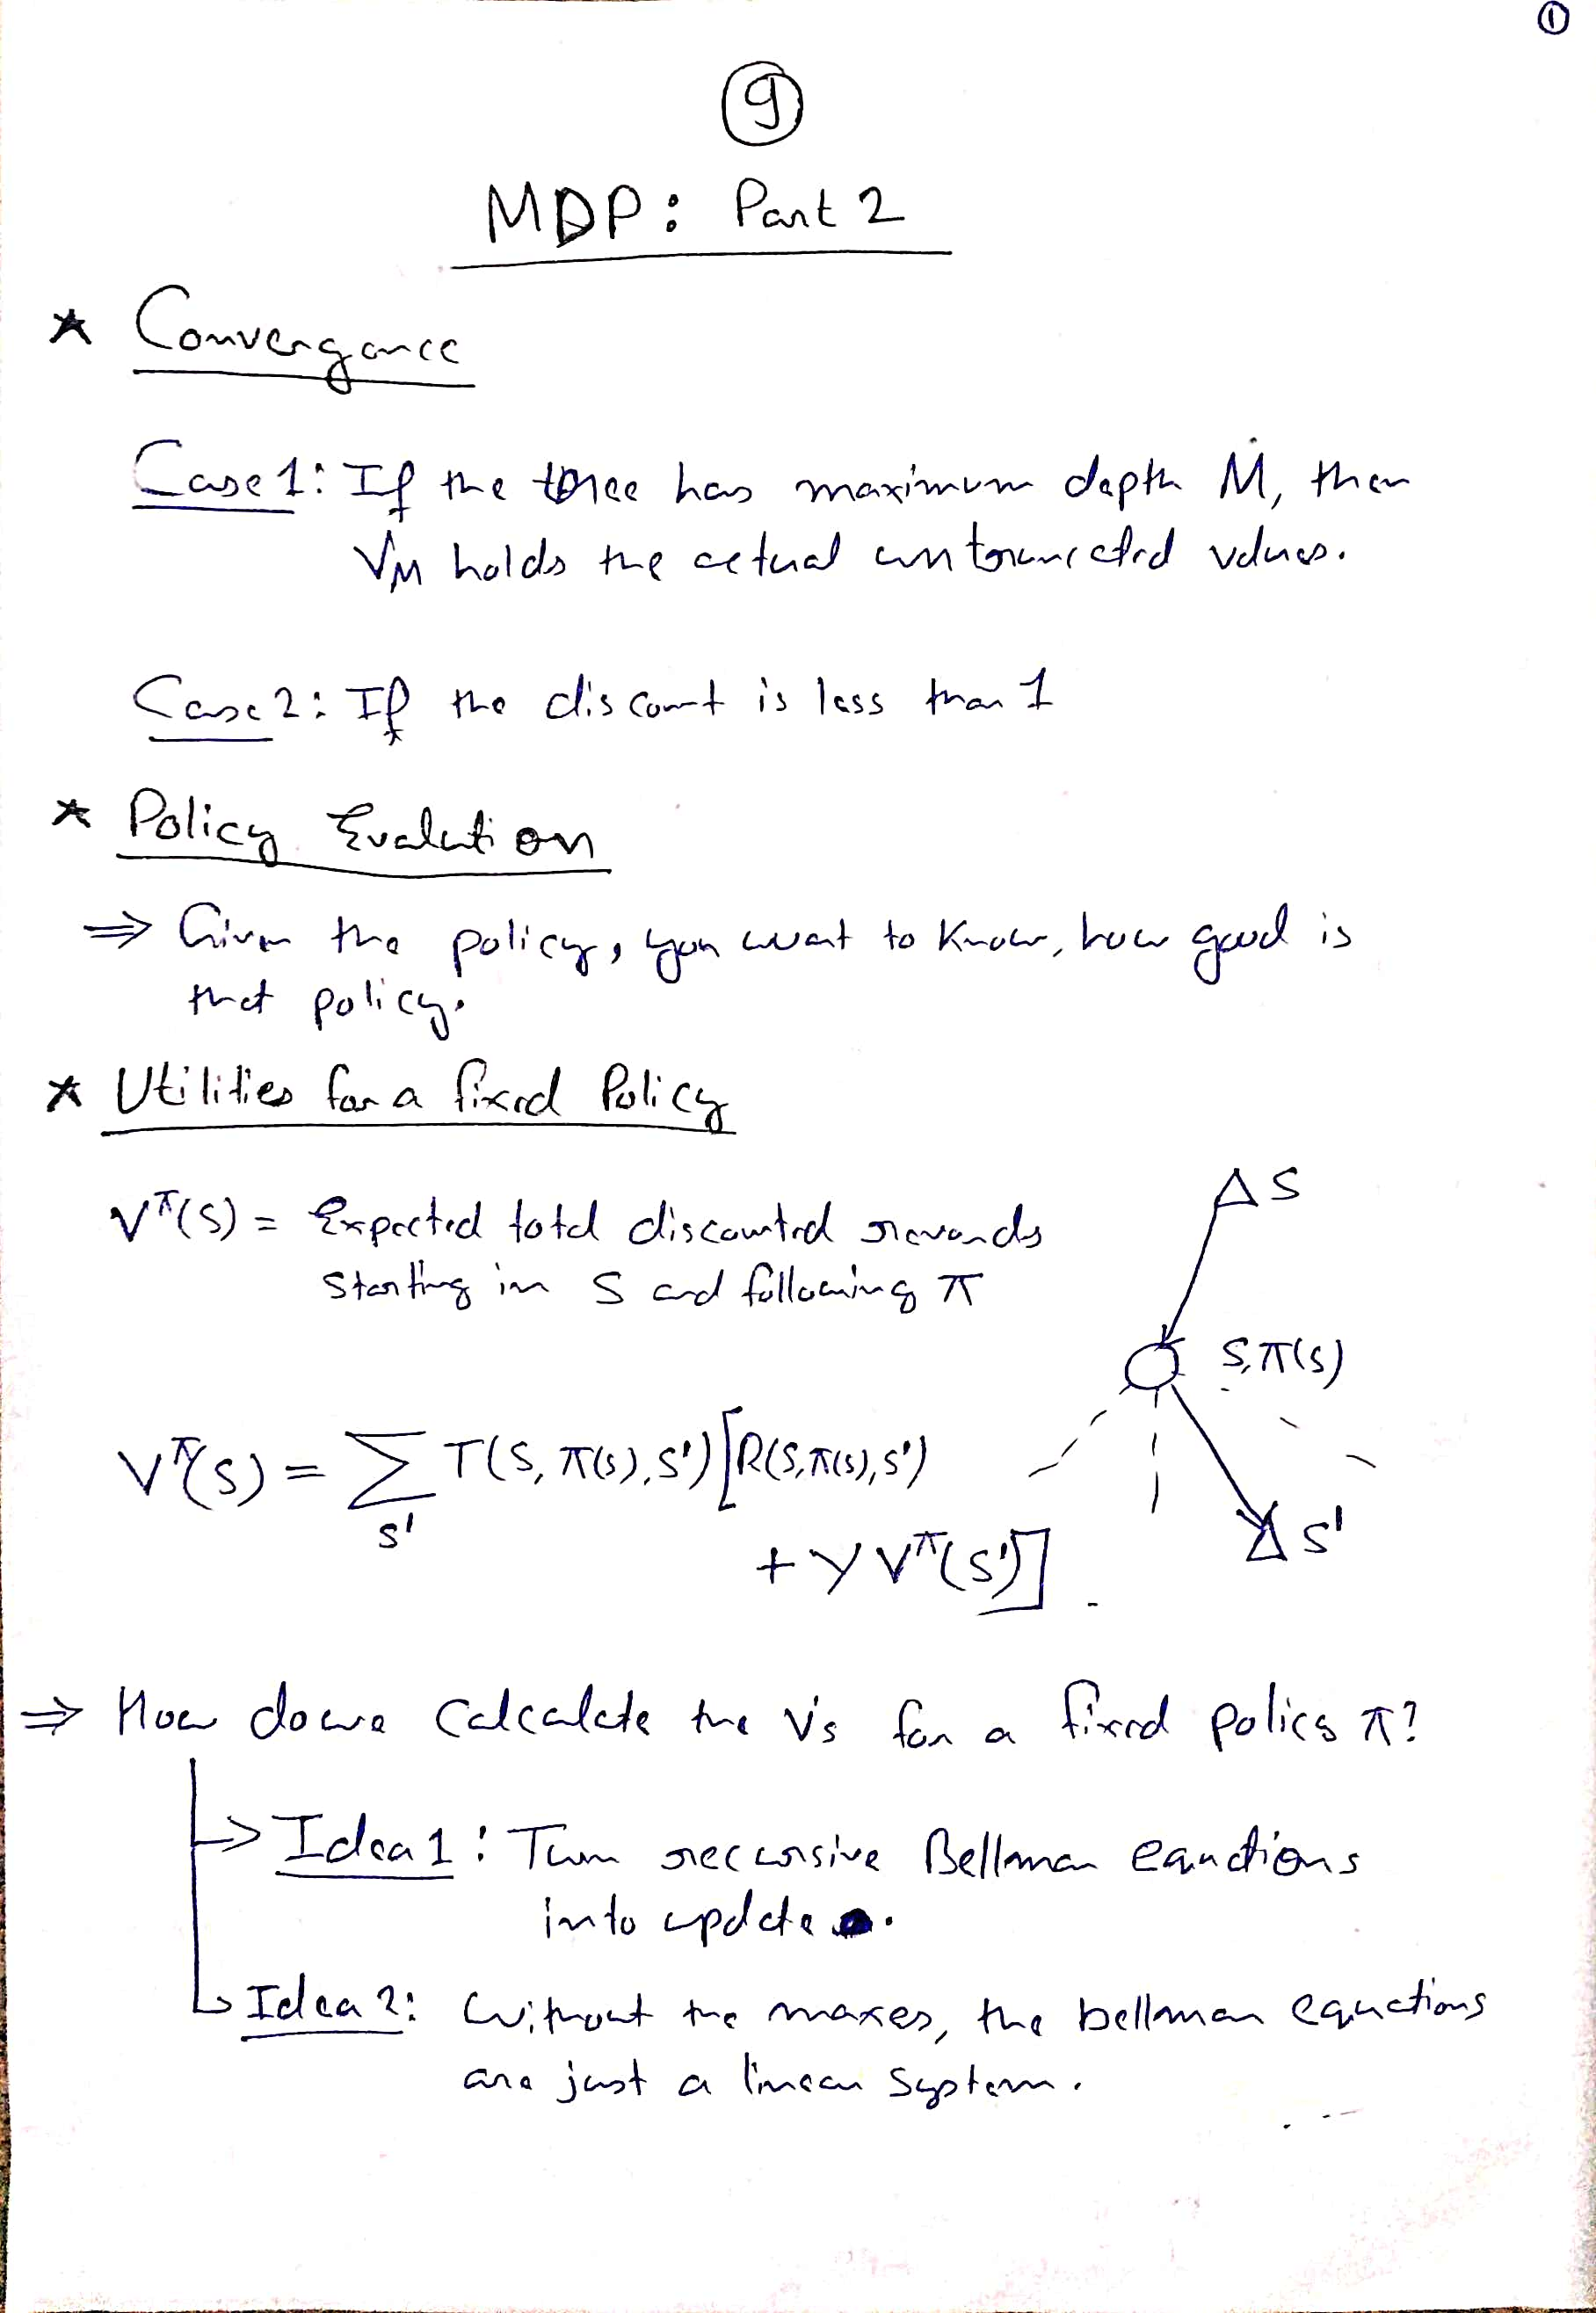 ①
⑨
MDP: Part 2
* Convergance
Case 1: If the tree has maximum depth M, then
V_M holds the actual untruncated values.
Case 2: If the discount is less than 1
* Policy Evalution
⇒ Given the policy, you want to know, how good is
that policy.
* Utilities for a fixed Policy
V^π(s) = Expected total discounted rewards
starting in s and following π
Δ S
S, π(s)
V^π(s) = Σ_{s'} T(s, π(s), s') [R(s, π(s), s')
+ γ V^π(s')]
Δ s'
⇒ How do we calculate the V's for a fixed policy π?
→ Idea 1: Turn reccursive Bellman equations
into update.
↳ Idea 2: Without the maxes, the bellman equations
are just a linear system.